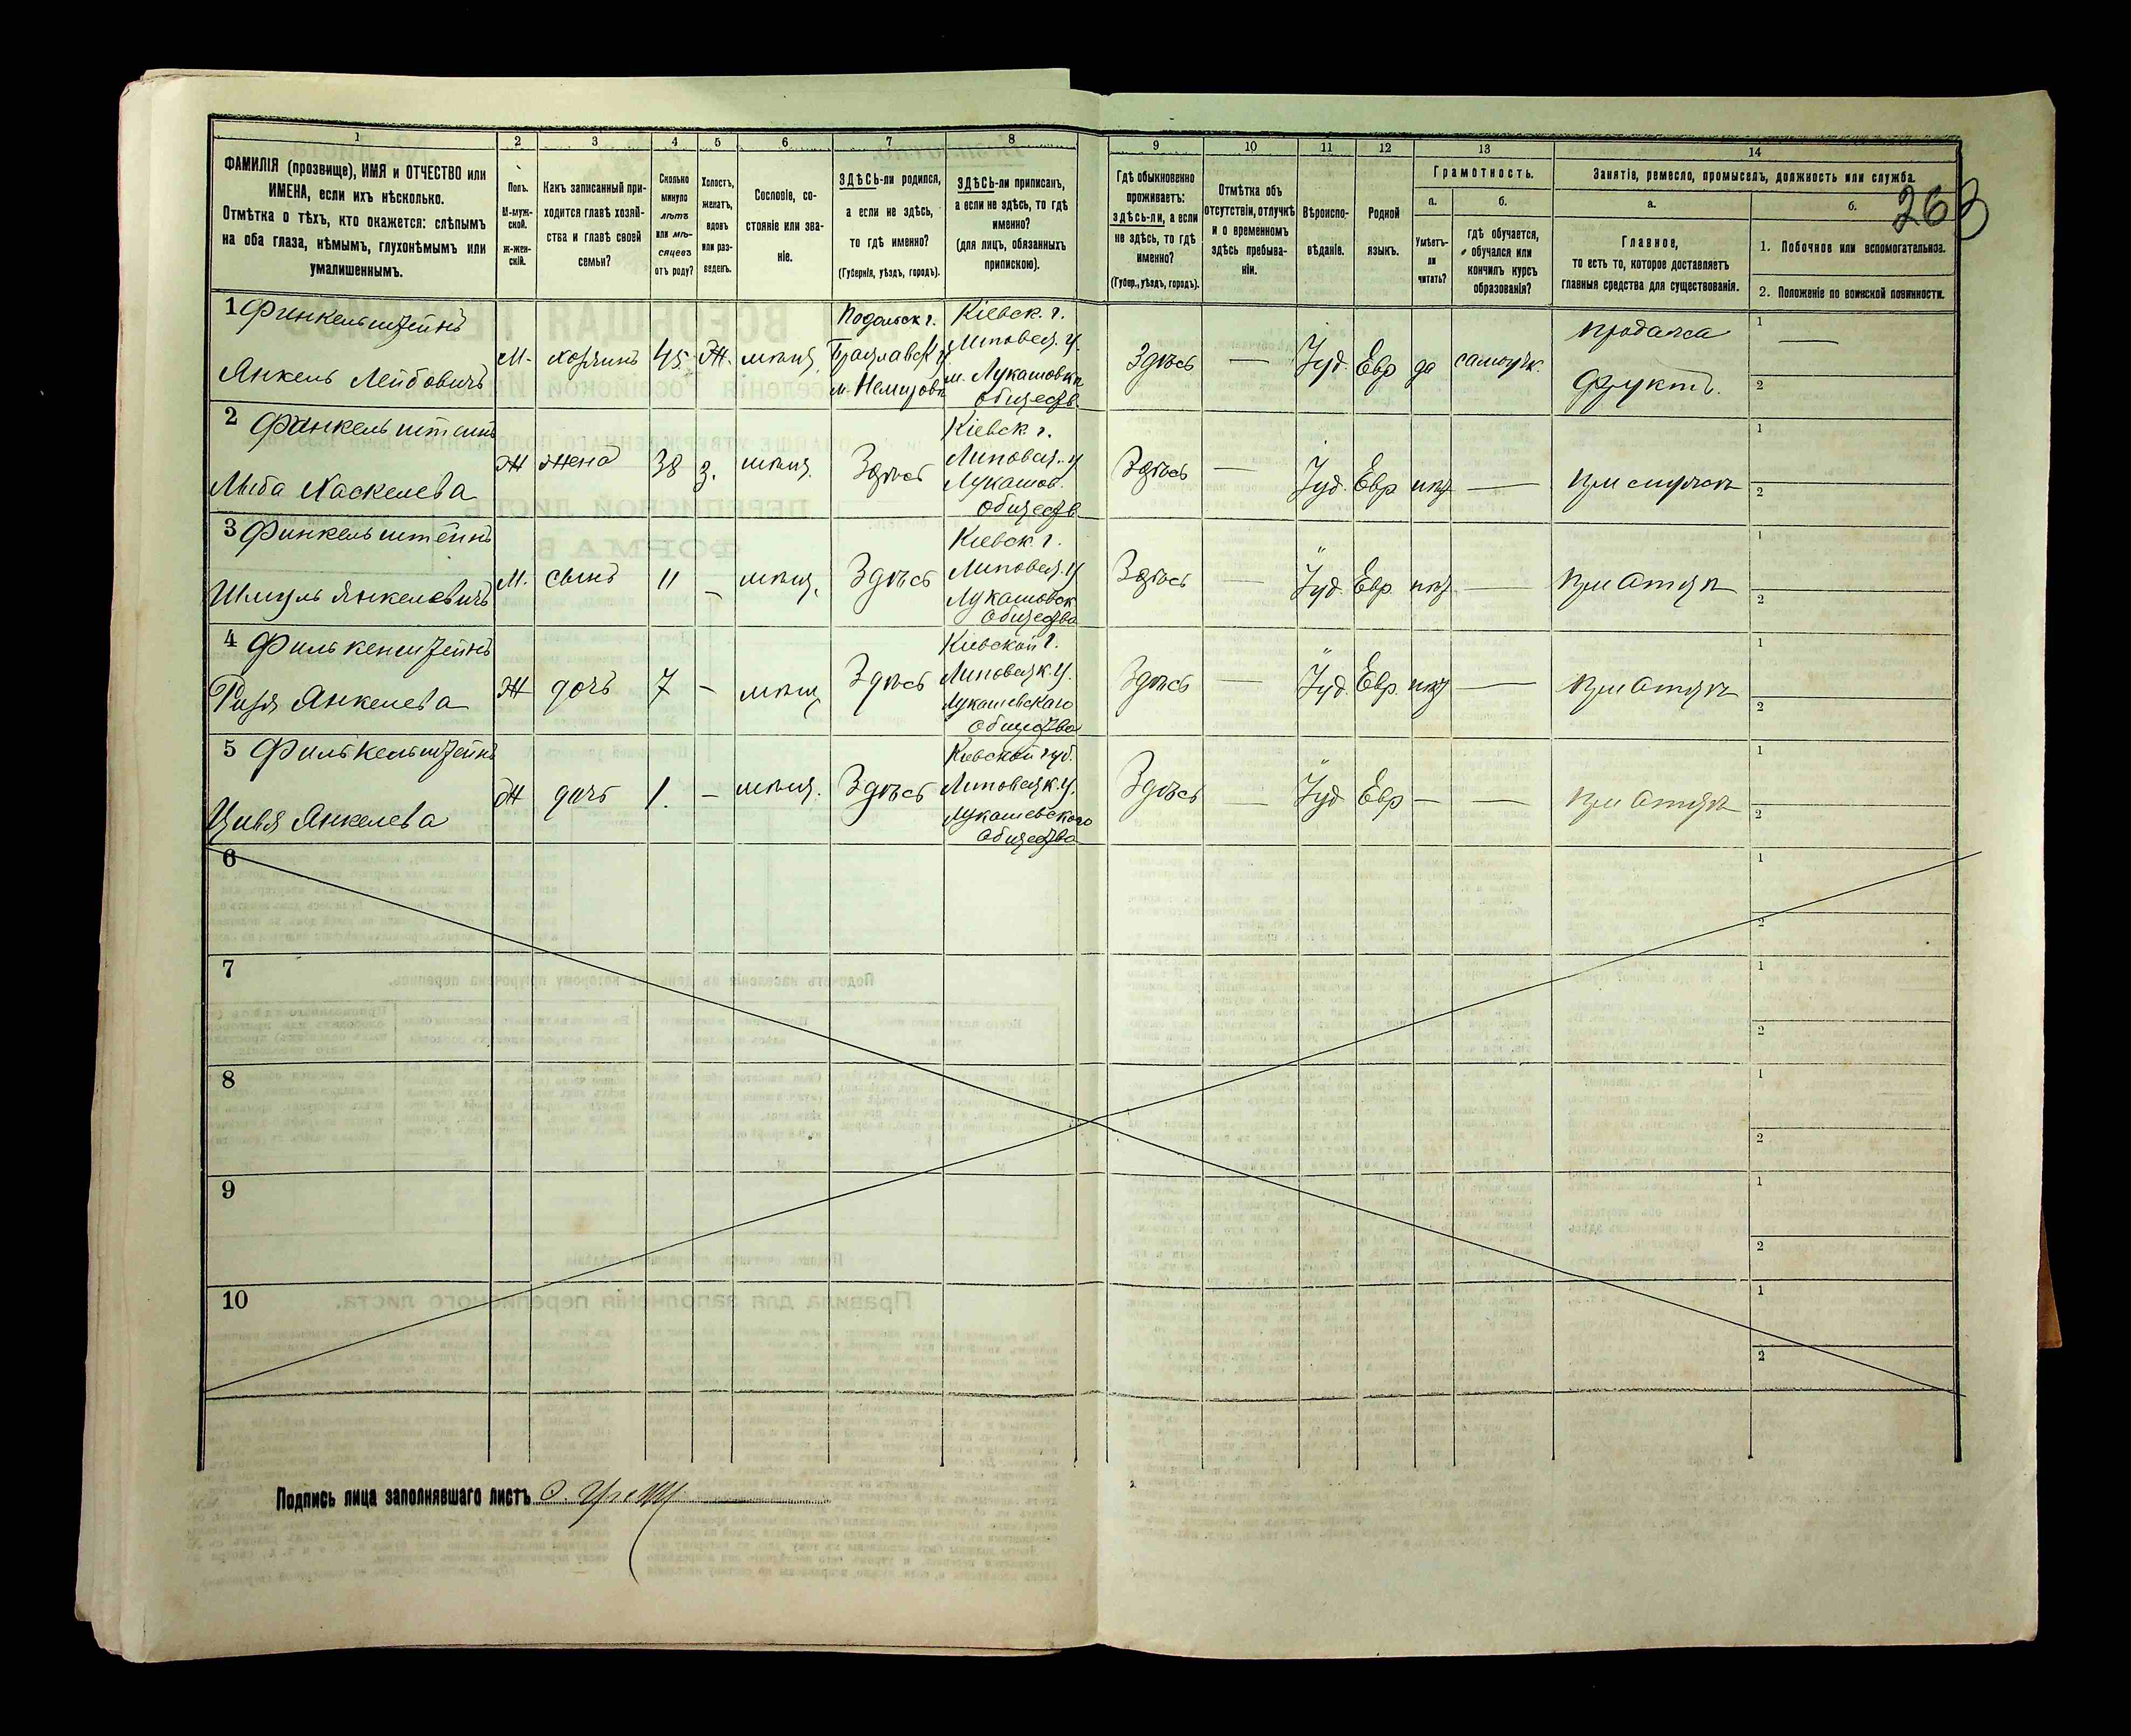 1
2
3
4
5
6
7
8
9
10
11
12
13
14
ФАМИЛІЯ (прозвище), ИМЯ и ОТЧЕСТВО или
ИМЕНА, если ихъ нѣсколько.
Отмѣтка о тѣхъ, кто окажется: слѣпымъ
на оба глаза, нѣмымъ, глухонѣмымъ или
умалишеннымъ.
Полъ.
М-муж-
ской.
Ж-жен-
скій.
Какъ записанный при-
ходится главѣ хозяй-
ства и главѣ своей
семьи?
Сколько
минуло
лѣтъ
или мѣ-
сяцевъ
отъ роду?
Холостъ,
женатъ,
вдовъ
или раз-
веденъ.
Сословіе, со-
стояніе или зва-
ніе.
ЗДѢСЬ-ли родился,
а если не здѣсь,
то гдѣ именно?
(Губернія, уѣздъ, городъ).
ЗДѢСЬ-ли приписанъ,
а если не здѣсь, то гдѣ
именно?
(для лицъ, обязанныхъ
припискою).
Гдѣ обыкновенно
проживаетъ:
здѣсь-ли, а если
не здѣсь, то гдѣ
именно?
(Губер., уѣздъ, городъ).
Отмѣтка объ
отсутствіи, отлучкѣ
и о временномъ
здѣсь пребыва-
ніи.
Вѣроиспо-
вѣданіе.
Родной
языкъ.
Грамотность.
а.
Умѣетъ-
ли
читать?
б.
гдѣ обучается,
обучался или
кончилъ курсъ
образованія?
Занятіе, ремесло, промыселъ, должность или служба.
263
а.
Главное,
то есть то, которое доставляетъ
главныя средства для существованія.
б.
1. Побочное или вспомогательное.
2. Положеніе по воинской повинности.
1 Финкельштейнъ
Янкель Лейбовичъ
М. хозяинъ 45 Ж. мѣщ.
Подольск г.
Брацлавск у.
м. Немировъ
Кіевск. г.
Липовец. у.
м. Лукашовки
обществ.
Здѣсь — Іуд. Евр да самоучк.
продажа
фруктъ.
1 —
2
2 Финкельштейнъ
Лыба Хаскелева
Ж жена 38 з. мѣщ. Здѣсь
Кіевск. г.
Липовец. у
Лукашов.
обществ.
Здѣсь — Іуд. Евр нѣт —
при мужѣ
1
2
3 Финкельштейнъ
Шмуль Янкелевичъ
М. сынъ 11 — мѣщ. Здѣсь
Кіевск. г.
Липовец. у
Лукашовск
общества
Здѣсь — Іуд. Евр. нѣт —
при отцѣ
1
2
4 Филькенштейнъ
Рузя Янкелева
Ж дочь 7 — мѣщ Здѣсь
Кіевской г.
Липовецк. у.
Лукашевскаго
общества
Здѣсь — Іуд. Евр. нѣт —
при отцѣ
1
2
5 Филькельштейнъ
Цивя Янкелева
Ж дочь 1. — мѣщ. Здѣсь
Кіевской губ.
Липовецк. у.
Лукашевского
общества
Здѣсь — Іуд Евр — —
при отцѣ
1
2
6
1
2
7
1
2
8
1
2
9
1
2
10
1
2
Подпись лица заполнявшаго листъ